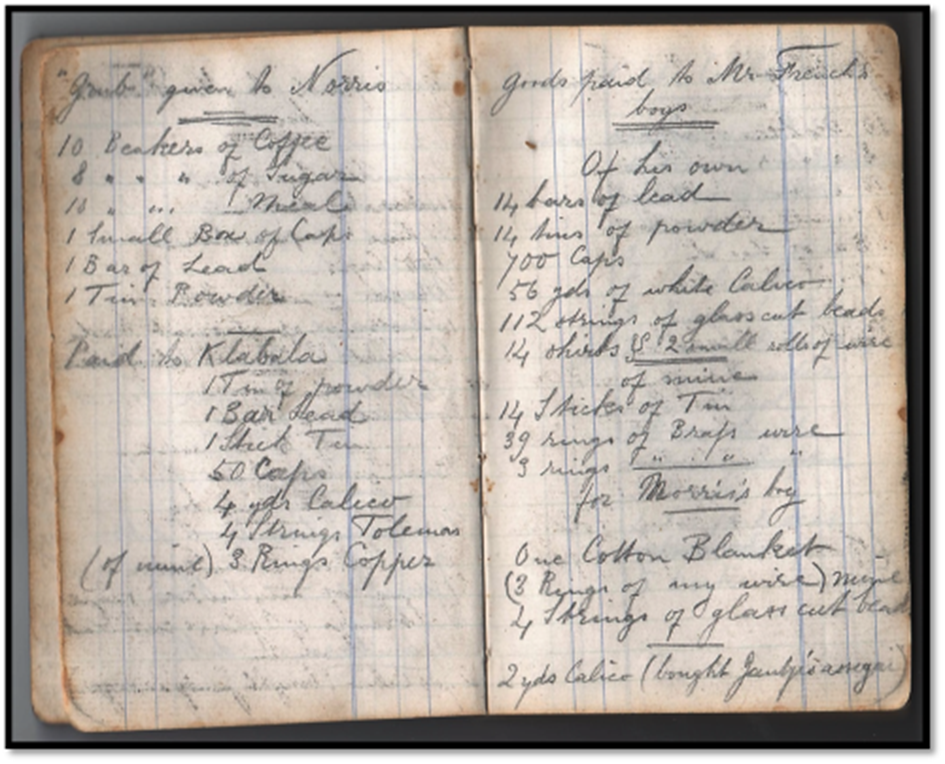 "Grub" given to Norris
10 Beakers of Coffee
8 " " " of Sugar
10 " " Meal
1 Small Box of Caps
1 Bar of Lead
1 Tin Powder
Paid to Klabala
1 Tin of powder
1 Bar Lead
1 Stick Tin
50 Caps
4 yds Calico
4 Strings
(of mine) 3 Rings Copper
goods paid to Mr French's
boys
Of his own
14 bars of lead
14 tins of powder
700 Caps
56 yds of white Calico
112 strings of glass cut beads
14 shirts & 2 small rolls of wire
of mine
14 Sticks of Tin
39 rings of Brass wire
3 rings " " "
for Morris's boy
One Cotton Blanket
(3 Rings of my wire) mine
4 Strings of glass cut bead
2 yds Calico (bought assegai)